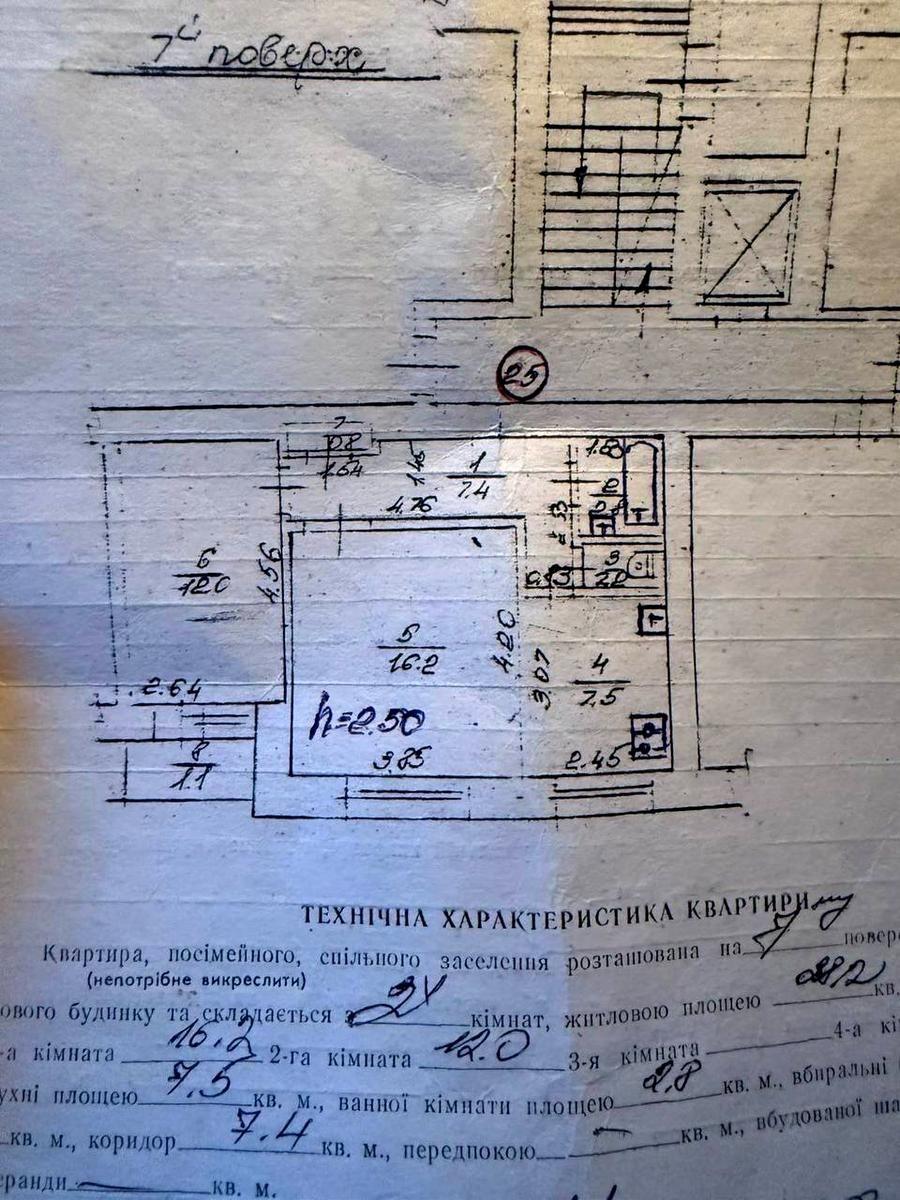 7й поверх
25
7
0.8
1.64
1.45
1
7.4
4.76
1.83
2
2.8
3
6
12.0
4.56
5
16.2
4.20
3.07
4
7.5
2.64
h=2.50
8
1.1
3.85
2.45
ТЕХНІЧНА ХАРАКТЕРИСТИКА КВАРТИРИ
Квартира, посімейного, спільного заселення розташована на 7му повер
(непотрібне викреслити)
ового будинку та складається з 2х кімнат, житловою площею 28.2 кв.
-а кімната 16.2 2-га кімната 12.0 3-я кімната 4-а кі
ухні площею 7.5 кв. м., ванної кімнати площею 2.8 кв. м., вбиральні
кв. м., коридор 7.4 кв. м., передпокою — кв. м., вбудованої ша
еранди — кв. м.